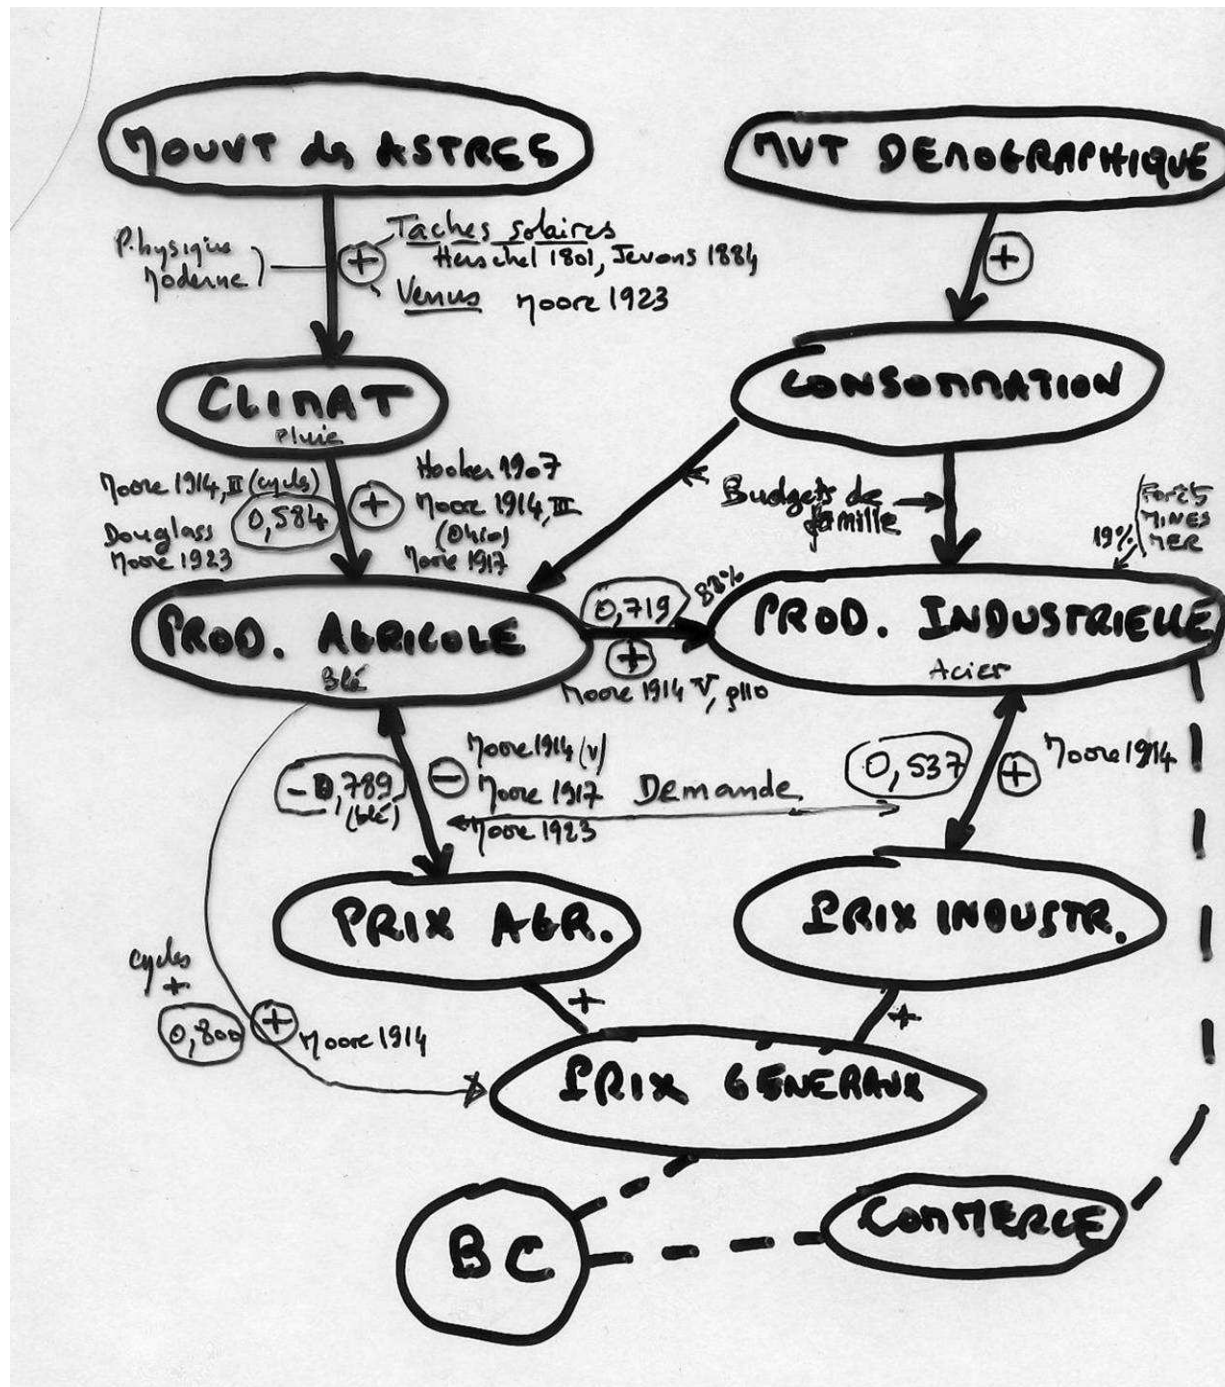 MOUVT des ASTRES
MVT DEMOGRAPHIQUE
Physique
Moderne
+
Taches solaires
Herschel 1801, Jevons 1884
Venus Moore 1923
+
CLIMAT
Pluie
CONSOMMATION
Moore 1914, II (cycles)
0,584
Douglass
Moore 1923
+
Hooker 1907
Moore 1914, III
(Ohio)
Moore 1917
Budgets de
famille
19%
Forêts
MINES
MER
PROD. AGRICOLE
Blé
0,719
+
Moore 1914 V, p110
PROD. INDUSTRIELLE
Acier
-0,789
(blé)
-
Moore 1914 (V)
Moore 1917
Moore 1923
Demande
0,537
+
Moore 1914
PRIX AGR.
PRIX INDUSTR.
cycles
+
0,800
+
Moore 1914
+
+
PRIX GENERAUX
BC
COMMERCE